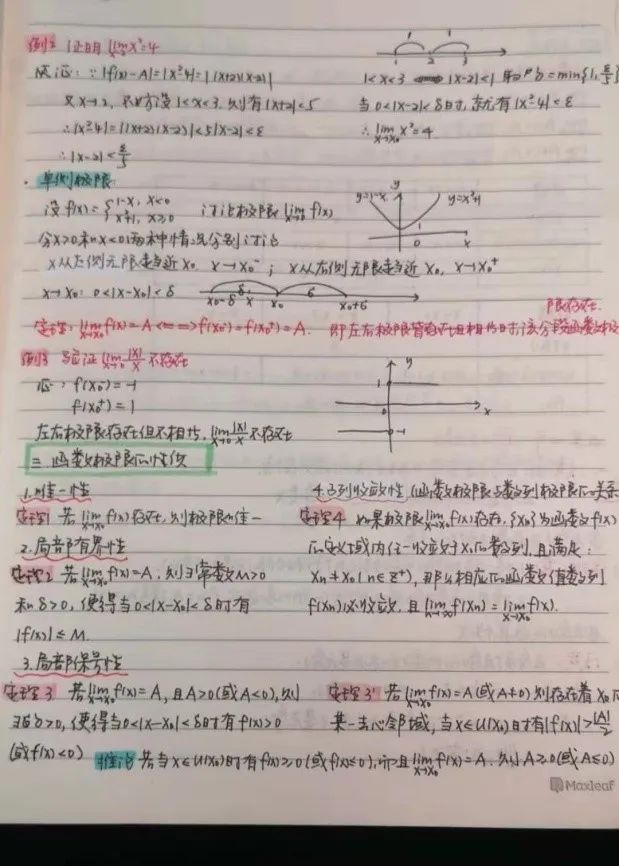 例2 证明 lim x²=4
证: ∵|f(x)-A|=|x²-4|=|(x+2)(x-2)|
又x→2, 不妨设1<x<3, 则有|x+2|<5
∴|x²-4|=|(x+2)(x-2)|<5|x-2|<ε
∴|x-2|<ε/5
1 1
1 2 3
1<x<3 |x-2|<1 取δ=min{1, ε/5}
当0<|x-2|<δ时, 就有|x²-4|<ε
∴ lim x→x₀ x²=4
· 单侧极限
设 f(x)={1-x, x<0
x²+1, x≥0 讨论极限 lim x→0 f(x)
y=1-x y y=x²+1
1
0 x
分x>0和x<0两种情况分别讨论
x从左侧无限趋近x₀, x→x₀⁻; x从右侧无限趋近x₀, x→x₀⁺
x→x₀: 0<|x-x₀|<δ
δ δ
x₀-δ x x₀ x₀+δ
限存在.
定理: lim x→x₀ f(x)=A <=> f(x₀⁻)=f(x₀⁺)=A. 即左右极限皆存在且相等时该分段函数极
例3 验证 lim x→0 |x|/x 不存在
证: f(x₀⁻)=-1
f(x₀⁺)=1
左右极限存在但不相等, lim x→0 |x|/x 不存在
y
1
0 x
-1
三 函数极限的性质
1.唯一性
定理1 若 lim x→x₀ f(x)存在, 则极限唯一
2.局部有界性
定理2 若 lim x→x₀ f(x)=A, 则∃常数M>0
和δ>0, 使得当0<|x-x₀|<δ时有
|f(x)|≤M.
3.局部保号性
定理3 若 lim x→x₀ f(x)=A, 且A>0(或A<0), 则
∃δ>0, 使得当0<|x-x₀|<δ时有f(x)>0
(或f(x)<0)
4.子列收敛性 (函数极限与数列极限的关系
定理4 如果极限 lim x→x₀ f(x)存在, {xn}为函数f(x)
的定义域内任一收敛于x₀的数列, 且满足:
xn≠x₀(n∈Z⁺), 那么相应的函数值数列
f(xn)必收敛, 且 lim n→∞ f(xn)=lim x→x₀ f(x).
定理3' 若 lim x→x₀ f(x)=A(或A≠0) 则存在着x₀的
某一去心邻域, 当x∈U(x₀)时有|f(x)|>|A|/2
推论 若当x∈U(x₀)时有f(x)≥0(或f(x)≤0), 而且 lim x→x₀ f(x)=A. 则A≥0(或A≤0)
Maxleaf